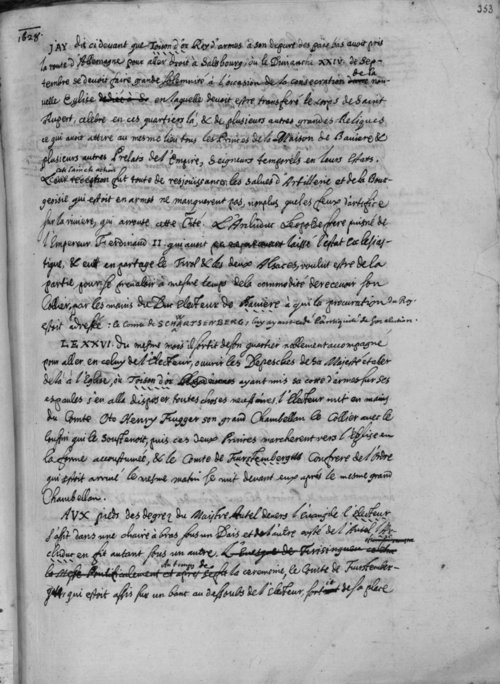 353
1628.
JAY dit cidevant que Toison d'or Roy d'armes à son depart des païs bas avoit pris
la route d'Allemagne pour aller droit à Salsbourg, ou le Dimanche XXIV. de Sep-
tembre se devoit faire grande solemnité à l'occasion de la consecration de la nou-
uelle Eglise en laquelle devoit estre transferé le corps de Saint
Rupert, celebre en ces quartiers là, & de plusieurs autres grandes Reliques,
ce qui avoit attiré au mesme lieu tous les Princes de la Maison de Baviere &
plusieurs autres Prelats de l'Empire, Seigneurs temporels en leurs Estats.
fut toute de resjouissance, les salues d'Artillerie et de la Bour-
geoisie qui estoit en armes ne manquerent pas, non plus que les feux d'artifice
sur la riviere, qui arrouse cette Cité. L'Archiduc Leopolde frere puisné de
l'Empereur Ferdinand II, qui avoit laissé l'estat Ecclesias-
tique, & eut en partage le Tirol & les deux Alsaces, voulut estre de la
partie, pour se prevaloir à mesme temps de la commodité de recevoir son
Collier, par les mains du Duc electeur de Baviere à qui la procuration du Roy
estoit adressée: le Comte de SCHWARTSENBERG, luy ayant cedé l'antiquité de son election.
LE XXVI. du mesme mois il sortit de son quartier noblement accompagné
pour aller en celuy de l'Electeur, ouvrir les Depesches de sa Majesté et aller
delà à l'Eglise, où Toison d'or ayant mis sa cotte d'armes sur ses
espaules s'en alla disposer toutes choses necessaires, l'Electeur mit en mains
du Comte Oto Henry Fugger son grand Chambellan le Collier avec le
Cussin qui le soustenoit, puis ces deux Princes marcherent vers l'Eglise en
la forme accoustumée, & le Comte de Furstemberg Confrere de l'Ordre
qui estoit arrivé le mesme matin se mit devant eux aprés le mesme grand
Chambellan.
AUX pieds des degrez du Maistre Autel devers l'Evangile l'Electeur
s'assit dans une chaire à bras sous un Dais et de l'autre costé de l'Autel l'Ar-
chiduc en fit autant sous un autre. L'Evesque de
la Messe Pontificalement et aprés la ceremonie, le Comte de Furstember-
gh, qui estoit assis sur un banc au dessoubs de l'Electeur, sortit de sa place